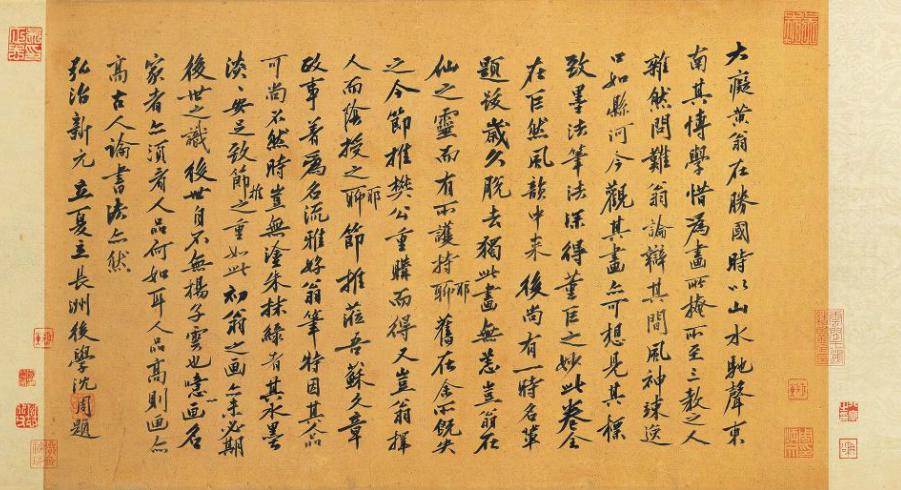 大癡黃翁在勝國時以山水馳聲東
南其博學惜為畫所掩所至三教之人
雜然問難翁論辯其間風神竦逸
口如縣河今觀其畫亦可想見其標
致墨法筆法深得董巨之妙此卷全
在巨然風韻中来後尚有一時名輩
題跋歲久脫去獨此畫無恙豈翁在
仙之靈而有所護持聊耶舊在余所既失
之今節推樊公重購而得又豈翁擇
人而陰授之聊耶節推蒞吾蘇文章
政事著為名流雅好翁筆特因其人品
可尚不然時豈無塗朱抹綠者其水墨
淡淡安足致節推之重如此初翁之画亦未必期
後世之識後世自不無揚子雲也噫画名
家者亦須看人品何如耳人品高則画亦
高古人論書法亦然
弘治新元立夏立長洲後學沈周題